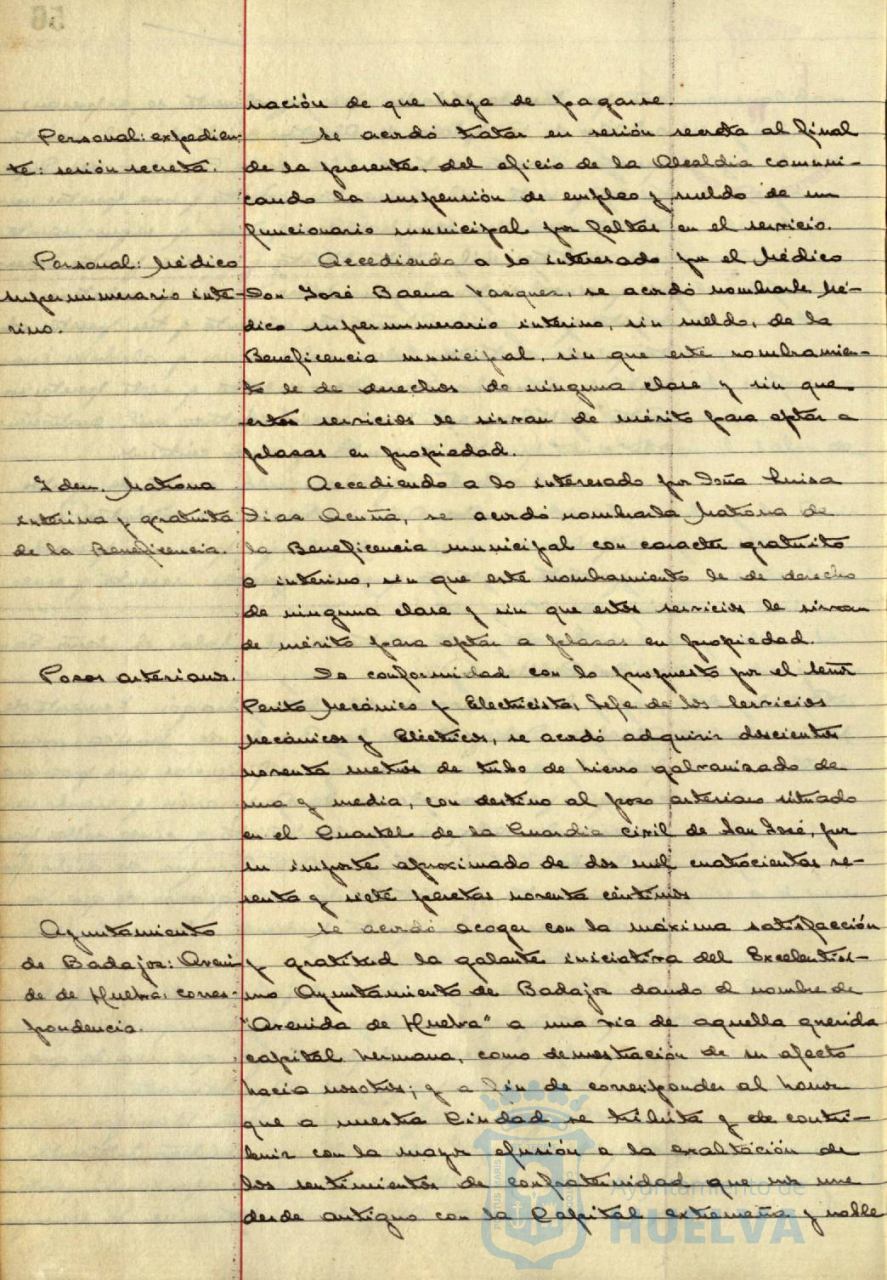 56
nación de que haya de pagarse.
Personal: expedien-
te: sesión secreta.
Se acordó tratar en sesión secreta al final
de la presente, del oficio de la Alcaldía comuni-
cando la suspensión de empleo y sueldo de un
funcionario municipal por faltas en el servicio.
Personal: Médico
supernumerario inte-
rino.
Accediendo a lo interesado por el Médico
Don José Baena Vasquez, se acordó nombrarle Mé-
dico supernumerario interino, sin sueldo, de la
Beneficencia municipal, sin que este nombramien-
to le de derechos de ninguna clase y sin que
estos servicios le sirvan de mérito para optar a
plazas en propiedad.
Idem. Matrona
interina y gratuita
de la Beneficencia.
Accediendo a lo interesado por Doña Luisa
Dias Acuña, se acordó nombrarla Matrona de
la Beneficencia municipal con caracter gratuito
e interino, sin que este nombramiento le de derecho
de ninguna clase y sin que estos servicios le sirvan
de mérito para optar a plazas en propiedad.
Pozos artesianos.
De conformidad con lo propuesto por el Señor
Perito Mecánico y Electricista, Jefe de los Servicios
Mecánicos y Eléctricos, se acordó adquirir doscientos
noventa metros de tubo de hierro galvanizado de
una y media, con destino al pozo artesiano situado
en el Cuartel de la Guardia civil de San José, por
su importe aproximado de dos mil cuatrocientas se-
senta y siete pesetas noventa céntimos
Ayuntamiento
de Badajoz: Aveni-
da de Huelva: corres-
pondencia.
Se acordó acoger con la máxima satisfacción
y gratitud la galante iniciativa del Excelentísi-
mo Ayuntamiento de Badajoz dando el nombre de
"Avenida de Huelva" a una vía de aquella querida
capital hermana, como demostración de su afecto
hacia nosotros; y a fin de corresponder al honor
que a nuestra Ciudad se tributa y de contri-
buir con la mayor efusión a la exaltación de
los sentimientos de confraternidad que nos une
desde antiguo con la Capital extremeña y noble
Ayuntamiento de
HUELVA